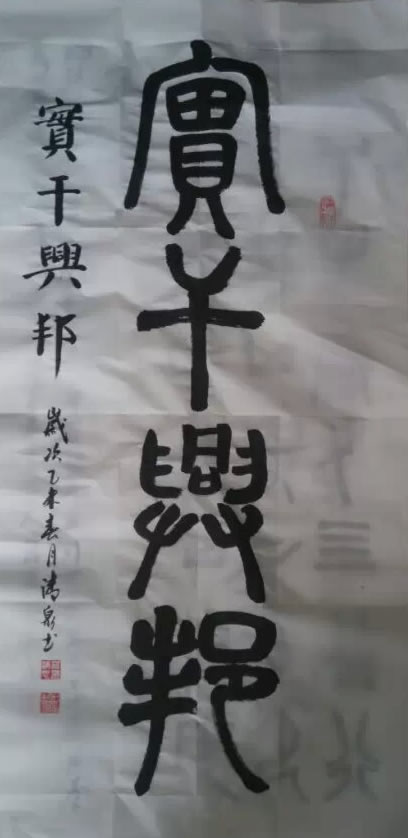 實干興邦
實干興邦
歲次乙未春月清泉书